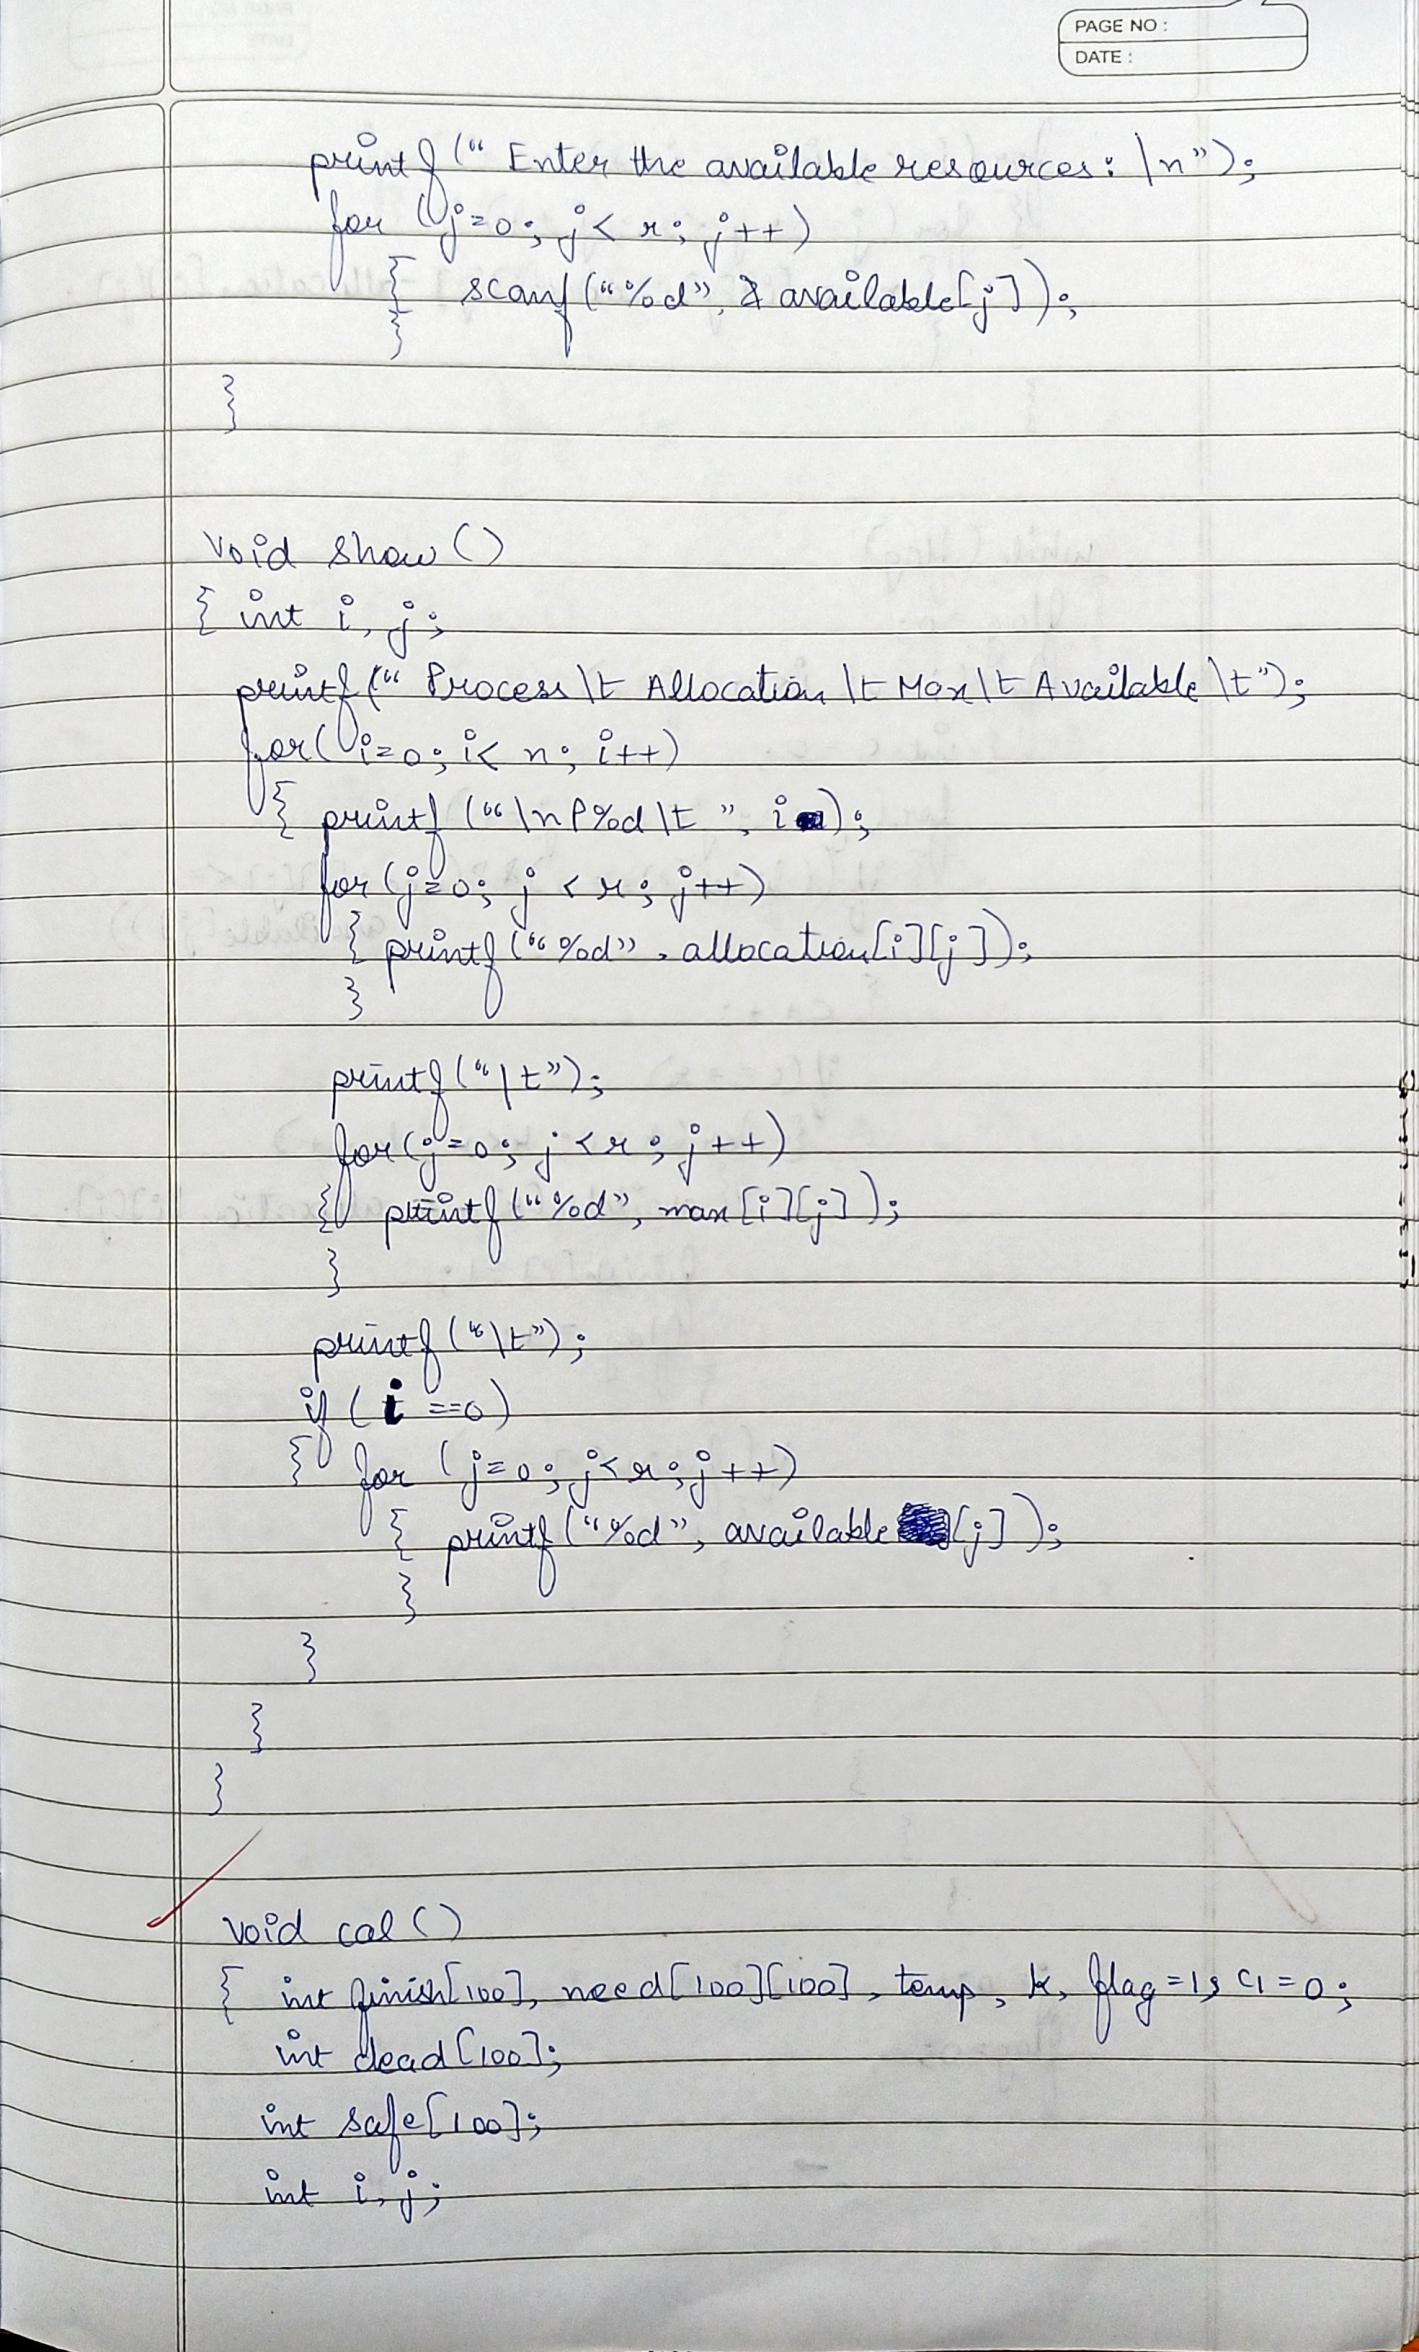 PAGE NO :
DATE :
printf (" Enter the available resources: \n");
for (j=0; j< r; j++)
{ scanf("%d", & available[j]);
}
}
void show ()
{ int i, j;
printf (" Process \t Allocation \t Max \t Available \t");
for( i=0; i< n; i++)
{ printf ("\n P%d \t ", i );
for (j=0; j < r; j++)
{ printf ("%d", allocation[i][j]);
}
printf ("\t");
for (j=0; j <r ; j++)
{ printf ("%d", max [i][j]);
}
printf ("\t");
if ( i ==0)
{ for (j=0; j<r; j++)
{ printf ("%d", available [j] );
}
}
}
}
void cal ()
{ int finish[100], need[100][100], temp, k, flag=1, c1=0;
int dead[100];
int safe[100];
int i, j;